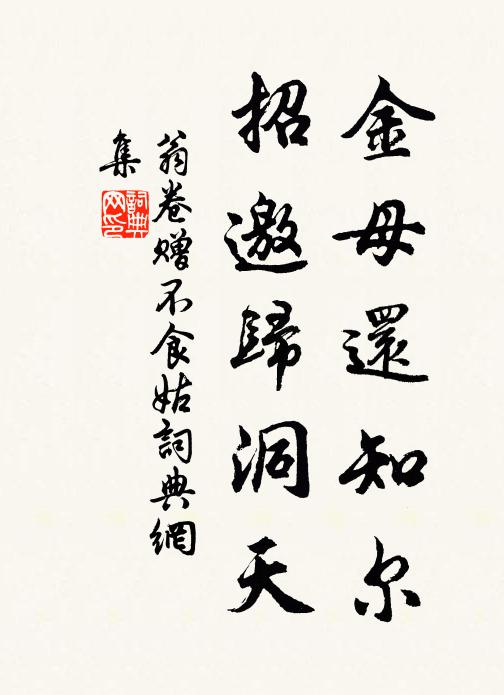 金母還知尔
招邀歸洞天
翁卷赠不食姑詞典網
集
詞典
网印